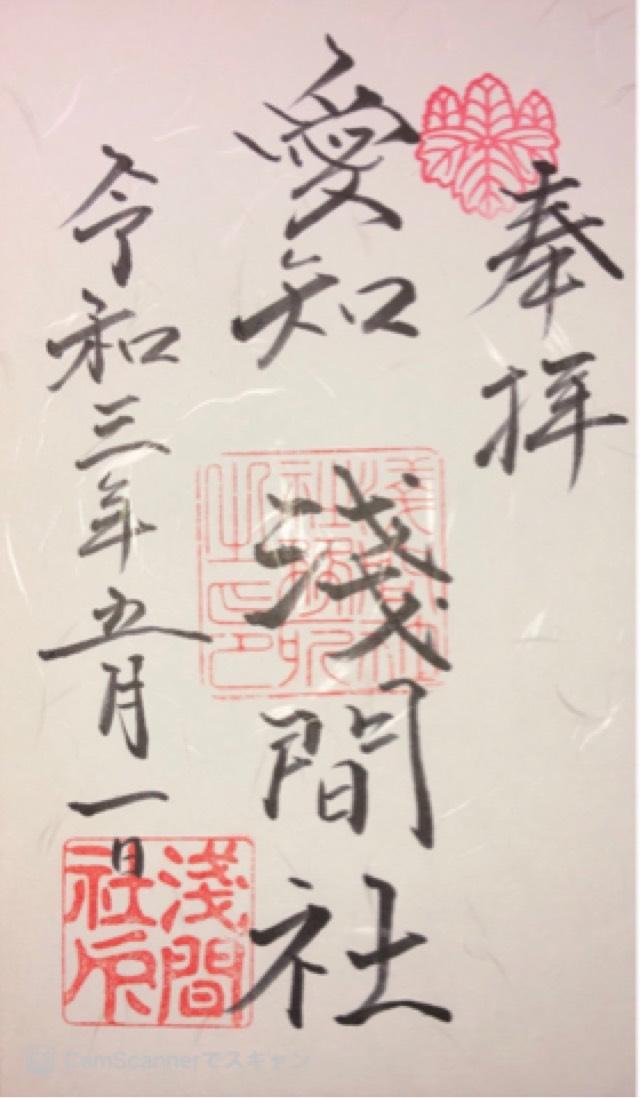 奉拝
愛知
淺間社
令和三年五月一日
淺間
社
CamScannerでスキャン